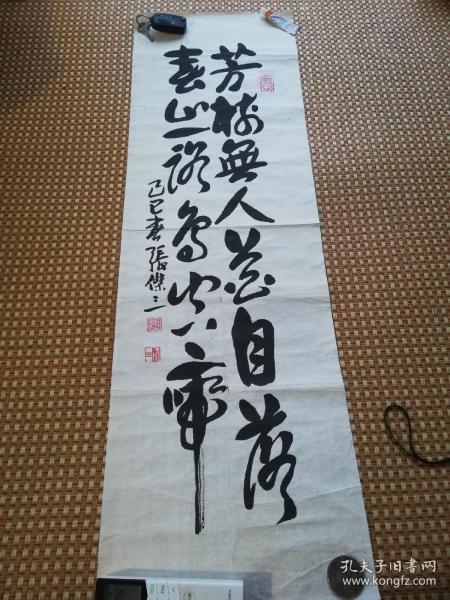 芳樹無人花自落
春山一路鳥空啼
己巳春張傑三
孔夫子旧书网
www.kongfz.com